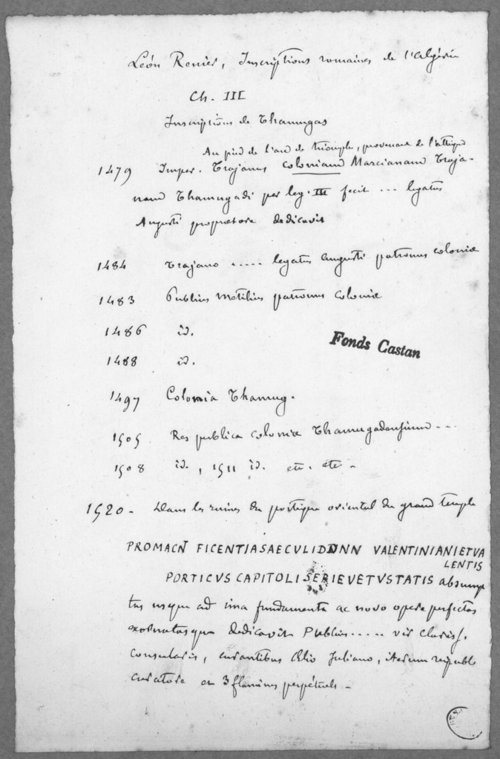 Léon Renier, Inscriptions romaines de l'Algérie
Ch. III
Inscriptions de Thamugas
Au pied de l'arc de triomphe, provenant de l'attique
1479 Imper. Trajanus coloniam Marcianam Traja-
nam Thamugadi per leg. III fecit ... legatus
Augusti propraetore dedicavit
1484 Trajano ..... legatus Augusti patronus coloniae
1483 Publius Motilius patronus coloniae
1486 id.
1488 id.
Fonds Castan
1497 Colonia Thamug.
1505 Respublica coloniae Thamugadensium ...
1508 id., 1511 id. etc. etc.
1520 - Dans les ruines du portique oriental du grand temple
PRO MACN FICENTIA SAECULI DDNN VALENTINIANI ET VA
LENTIS
PORTICUS CAPITOLI SERIE VETUSTATIS absump
tas usque ad ima fundamenta ac novo opere perfectas
exornatasque dedicavit Publius ..... vir clariss.
consularis, curantibus Aelio Juliano, iterum reipubl
curatore et 3 flamines perpétuels -